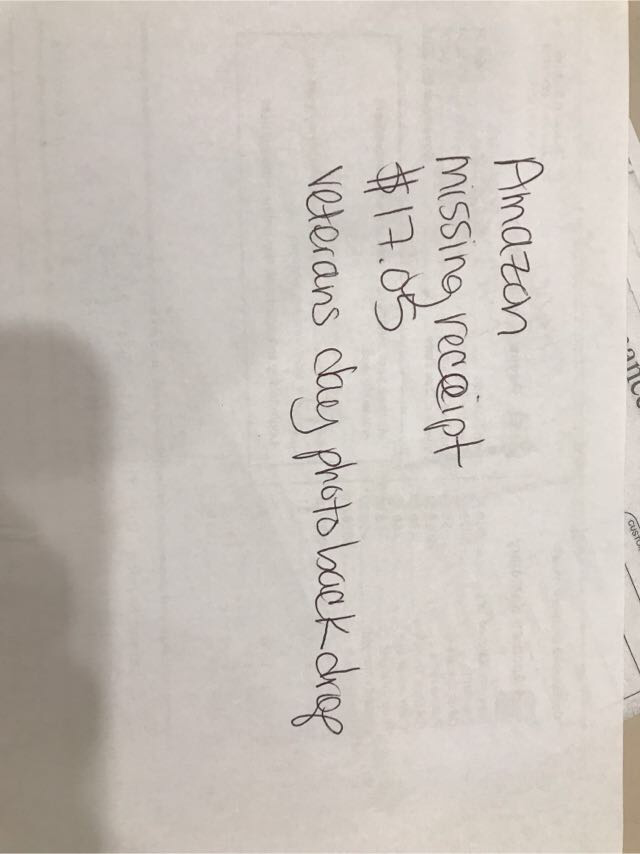 Amazon
missing receipt
$17.05
veterans day photo backdrop